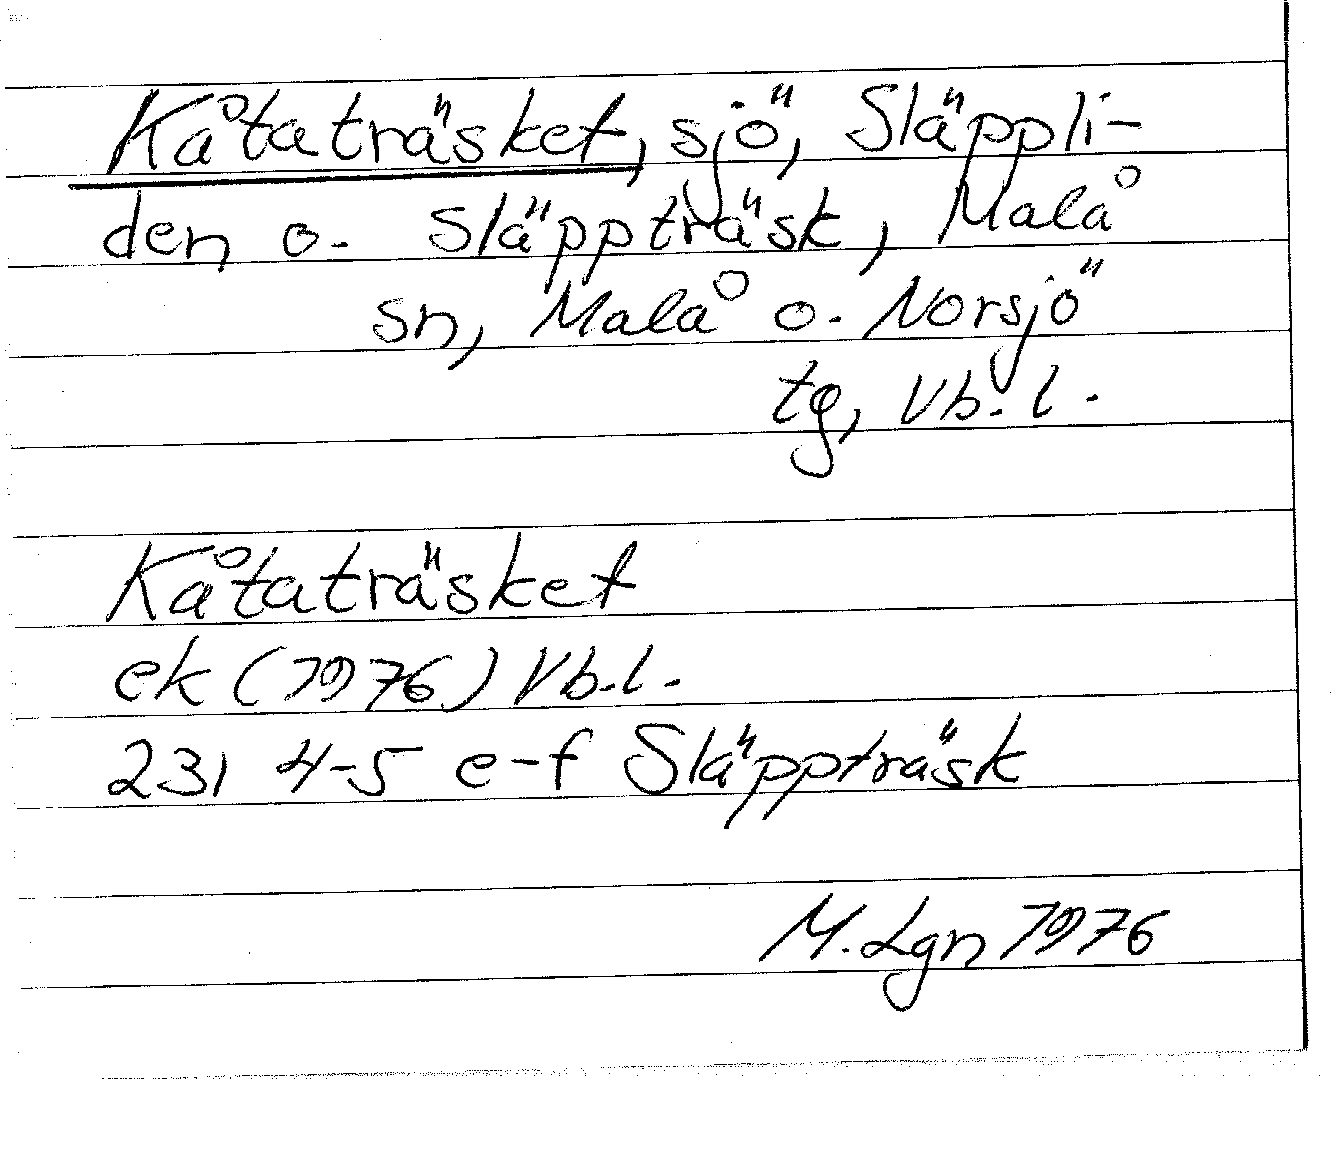 Kåtaträsket, sjö, Släppli-
den o. Släppträsk, Malå
sn, Malå o. Norsjö
tg, Vb. l.
Kåtaträsket
ek (1976) Vb. l.
231 4-5 e-f Släppträsk
M. Lgn 1976